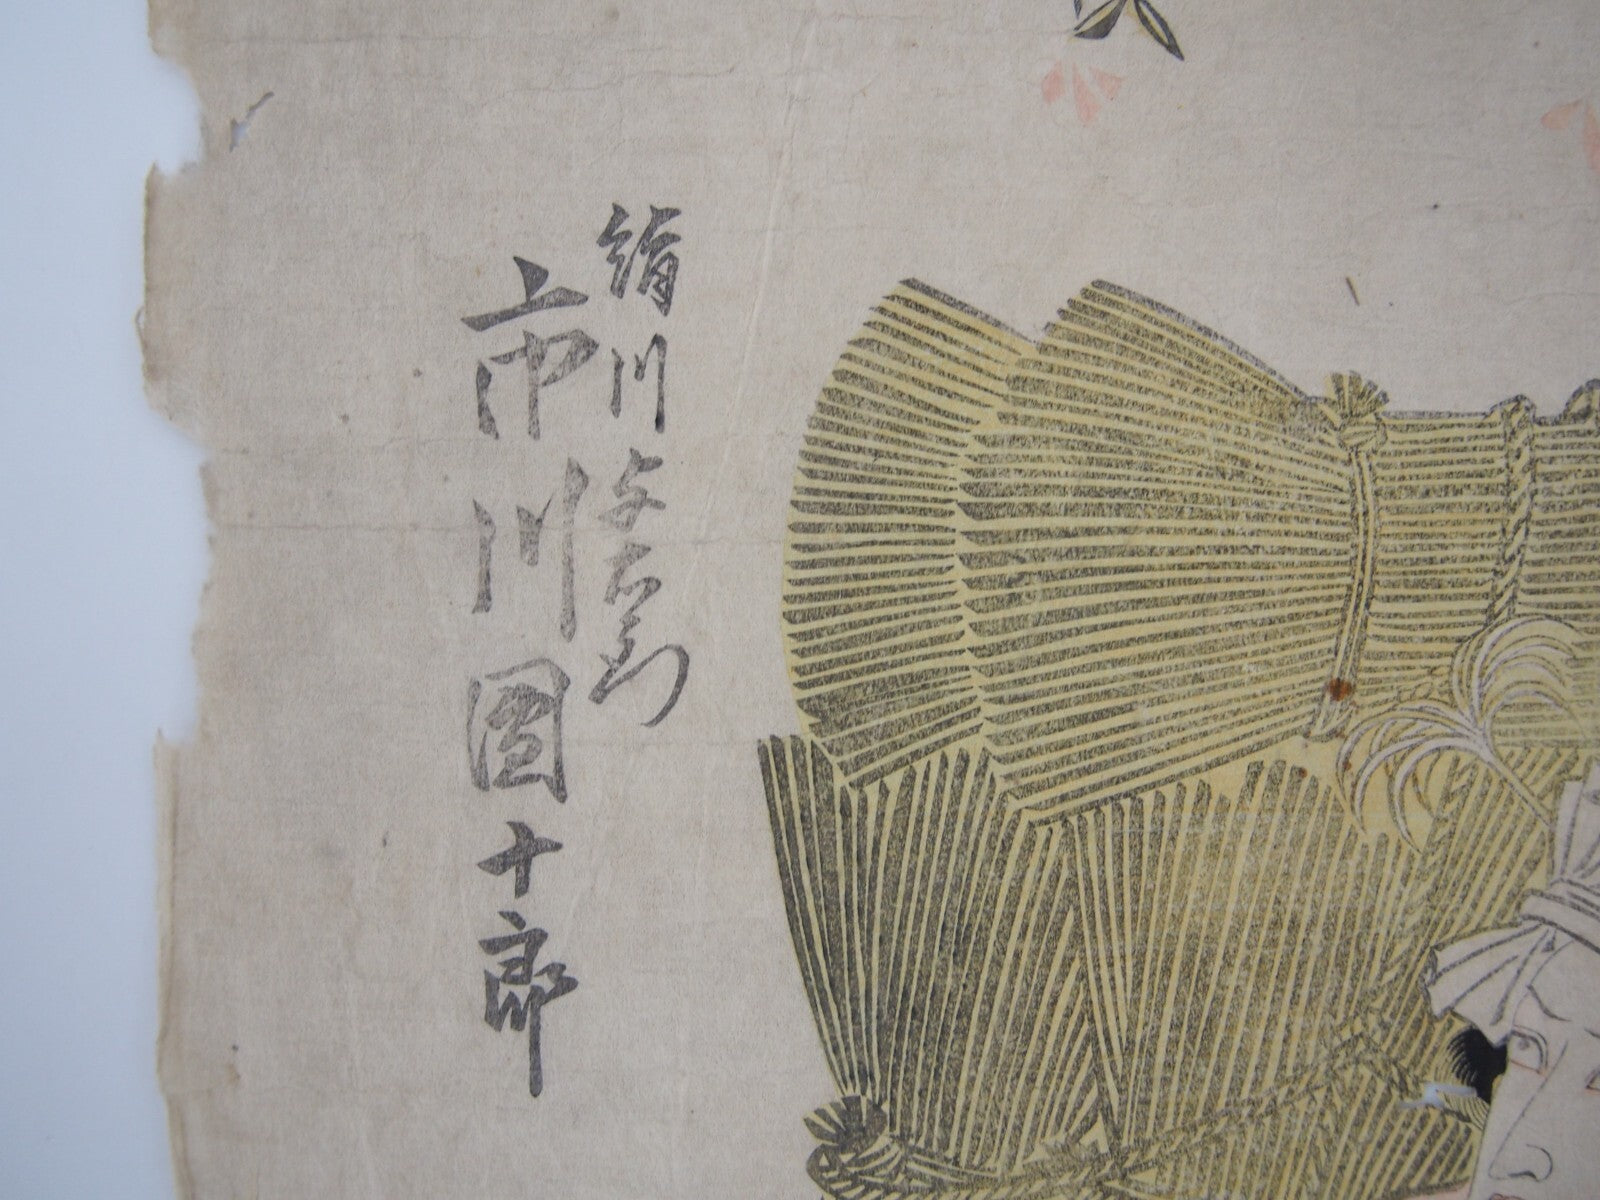 絹川与右衛門
市川團十郎